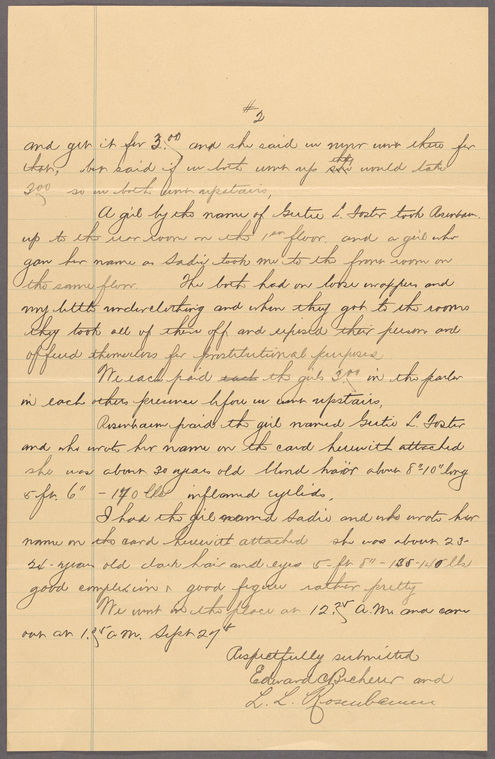 #2
and get it for 3.00 and she said we never went there for
that, but said if we both went up they would take
3.00 so we both went upstairs,
A girl by the name of Gertie L. Foster took Rosenbaum
up to the rear room on the 1st floor and a girl who
gave her name as Sadie took me to the front room on
the same floor. The both had on loose wrappers and
very little underclothing and when they got to the rooms
they took all of these off and exposed their person and
offered themselves for prostitutional purposes
We each paid each the girls 3.00 in the parlor
in each others presence before we went upstairs,
Rosenbaum paid the girl named Gertie L. Foster
and who wrote her name on the card herewith attached
she was about 30 years old blond hair about 8"-10" long
5 ft. 6" - 140 lbs inflamed eyelids,
I had the girl named Sadie and who wrote her
name on the card herewith attached she was about 23-
years old dark hair and eyes 5-ft 8" - 135-140 lbs
good complexion & good figure rather pretty
We went in the place at 12.25 A.M. and came
out at 1.25 A.M. Sept 27th
Respectfully submitted
Edward and
L. L. Rosenbaum